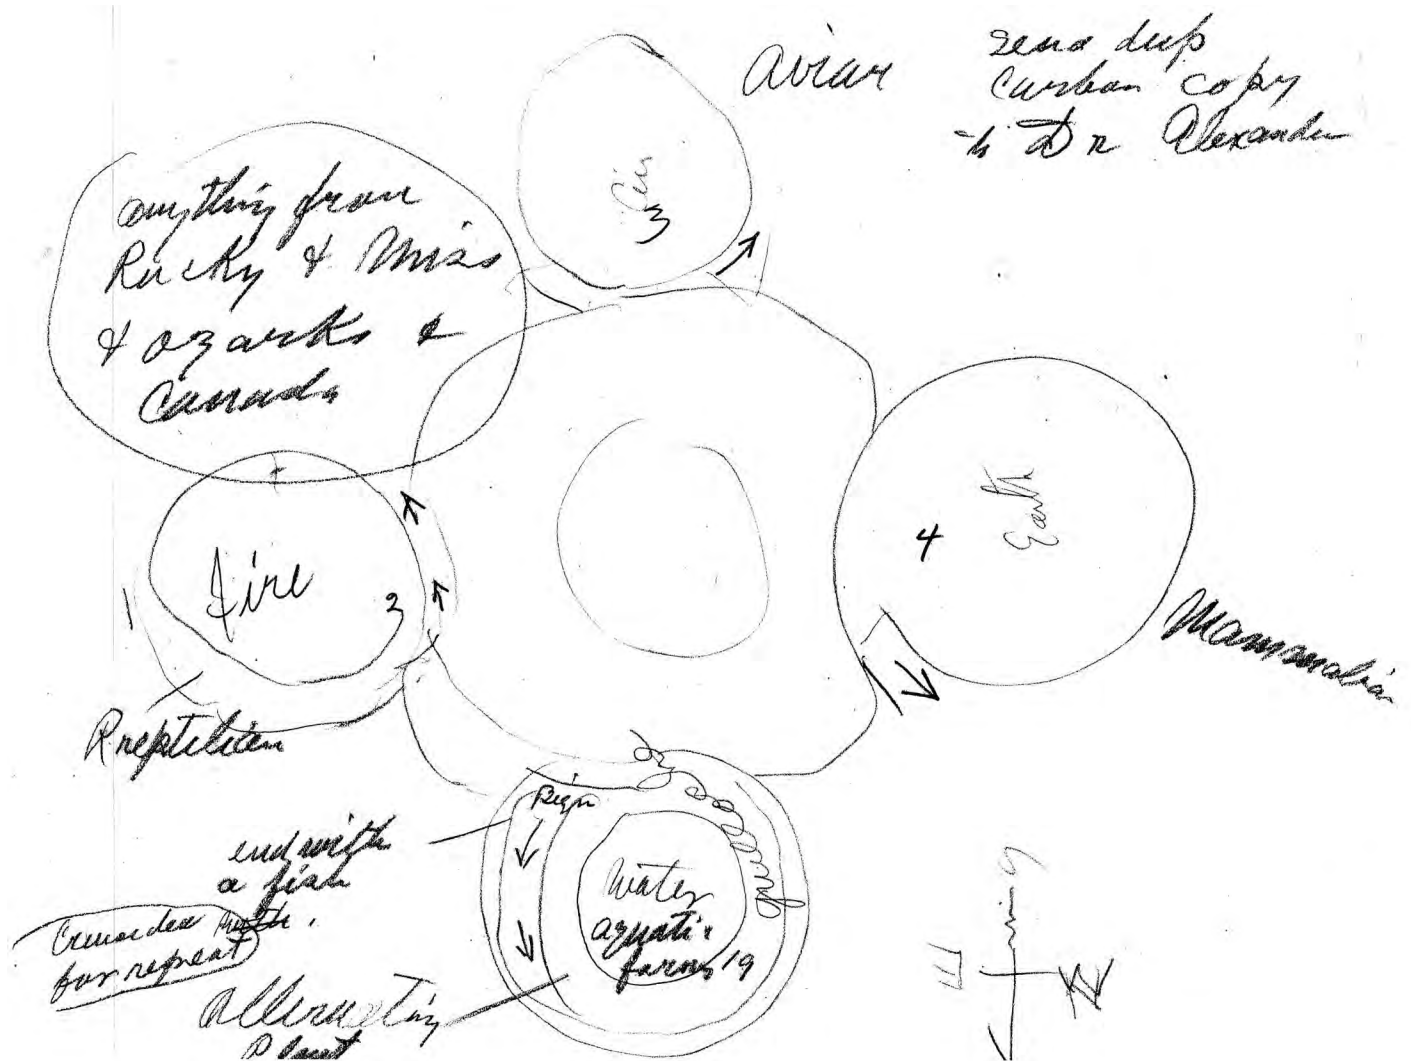 aviar
send dup
Carbon copy
to Dr Alexander
anything from
Rocky & Miss
& ozarks &
Canada
3
Earth
4
fire
2
1
Mammalia
Rreptilien
Begin
end with
a fish
for repeat
Water
aquatic
farms 19
Alternating
Plant